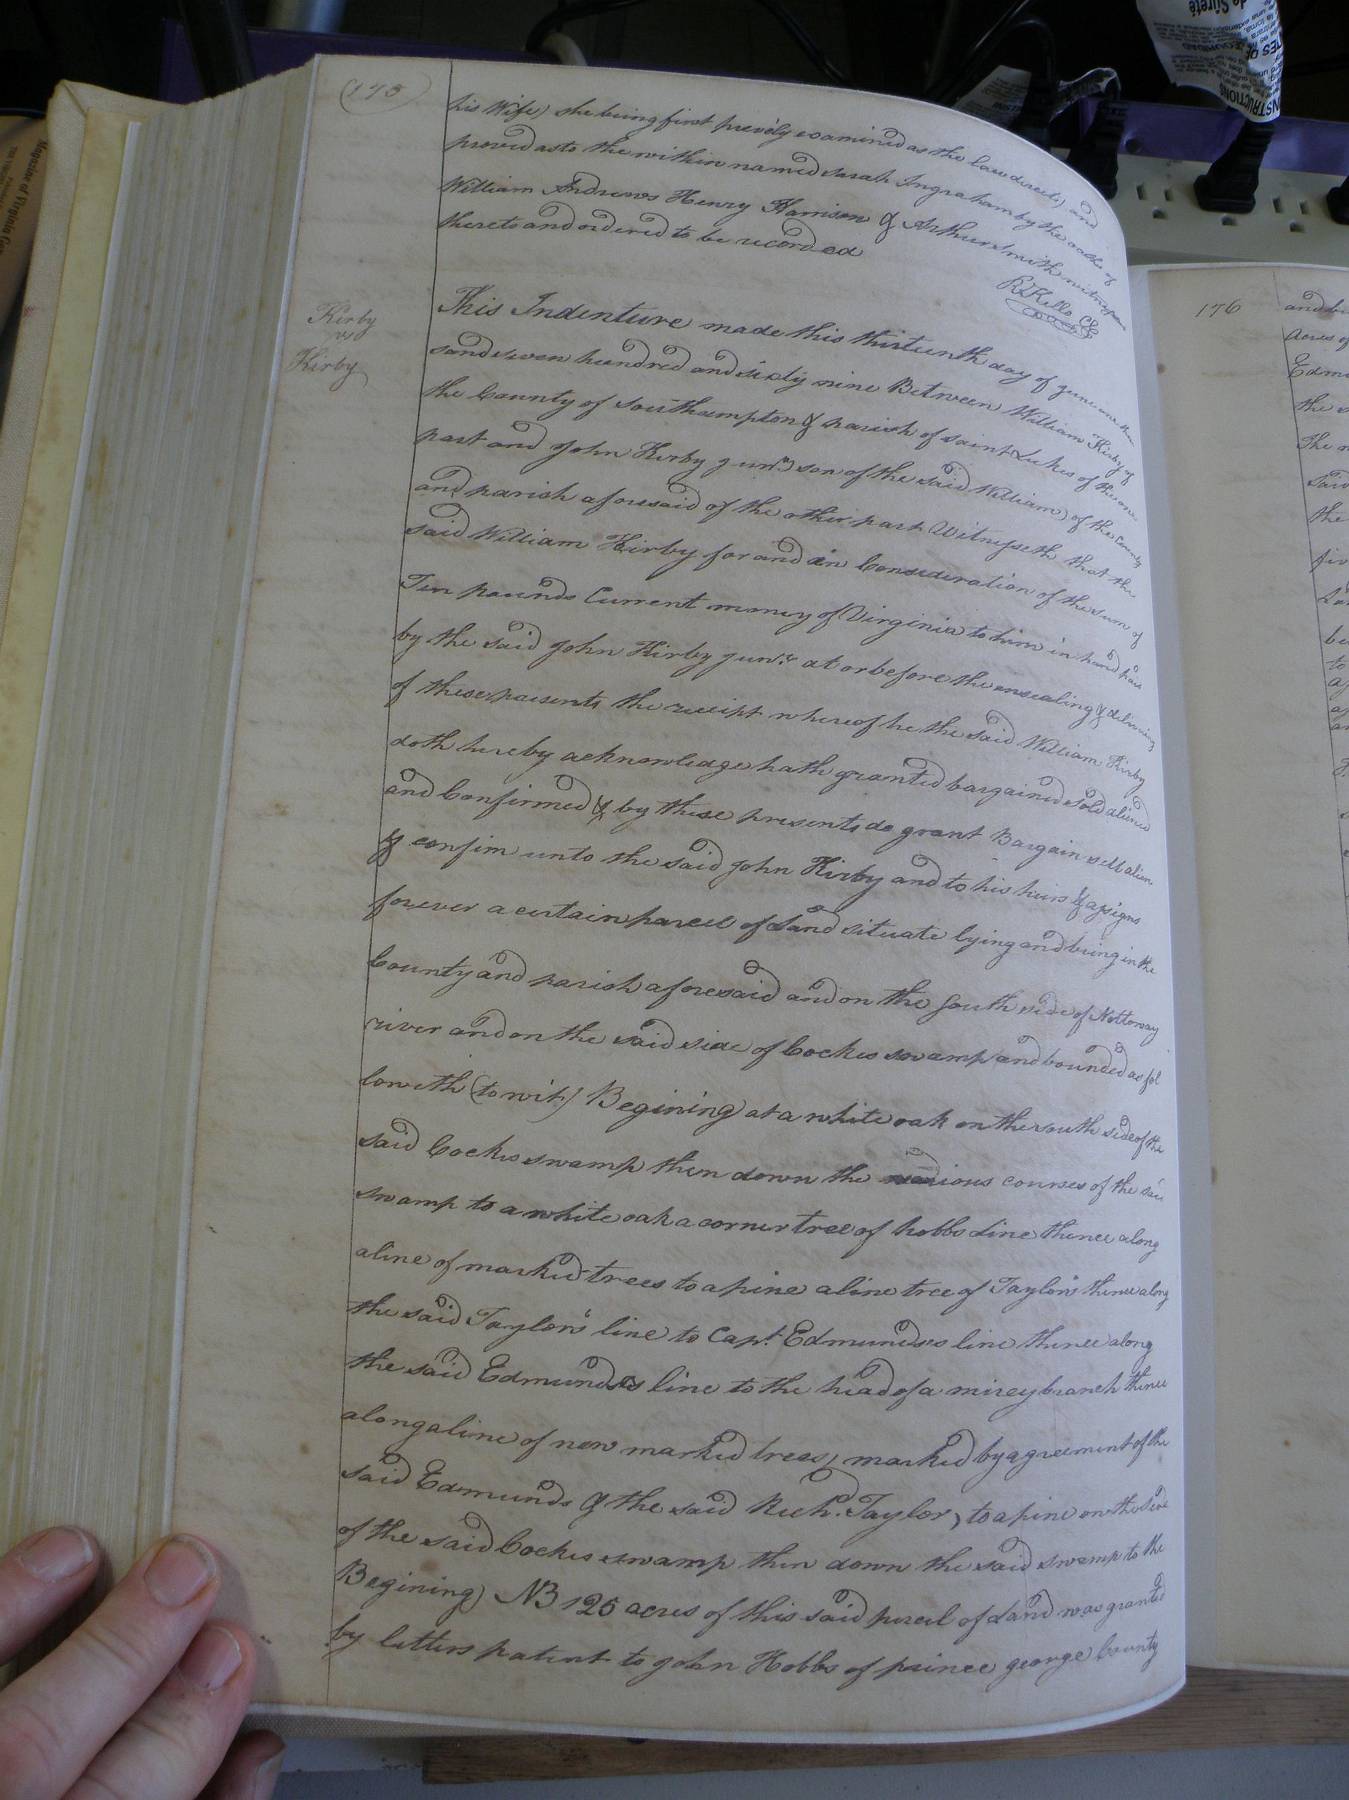 (175)
his Wife) she being first previly examined as the law directs) and
proved as to the within named Sarah Ingraham by the oaths of
William Andrews Henry Harrison & Arthur Smith witnesses
thereto and ordered to be recorded
R Kello CC
Kirby
vs
Kirby
This Indenture made this thirteenth day of June one thou
sand seven hundred and sixty nine Between William Kirby of
the County of Southampton & parish of saint Lukes of the one
part and John Kirby Junr. son of the said William) of the County
and parish aforesaid of the other part Witnesseth that the
said William Kirby for and in Consideration of the sum of
Ten pounds Current money of Virginia to him in hand paid
by the said John Kirby Junr. at or before the ensealing & delivering
of these presents the receipt whereof he the said William Kirby
doth hereby acknowledge hath granted bargained sold aliened
and Confirmed & by these presents do grant Bargain sell alien
& confim unto the said John Kirby and to his heirs & assigns
forever a certain parcel of Land situate lying and being in the
County and parish aforesaid and on the South side of Nottoway
river and on the said side of Cockes swamp and bounded as fol
loweth (to wit) Begining at a white oak on the south side of the
said Cockes swamp then down the various courses of the said
swamp to a white oak a corner tree of hobbs Line thence along
a line of marked trees to a pine a line tree of Taylors thence along
the said Taylors line to Capt. Edmundses line thence along
the said Edmundses line to the head of a mirey branch thence
along a line of new marked trees, marked by agreement of the
said Edmunds & the said Richd. Taylor, to a pine on the side
of the said Cockes swamp then down the said swamp to the
Begining) NB 125 acres of this said parcel of Land was granted
by letters patent to John Hobbs of prince george County
176
and
acres of
Edm
the
The
Said
the
Magazine of Virginia
INSTRUCTIONS
de Sûreté